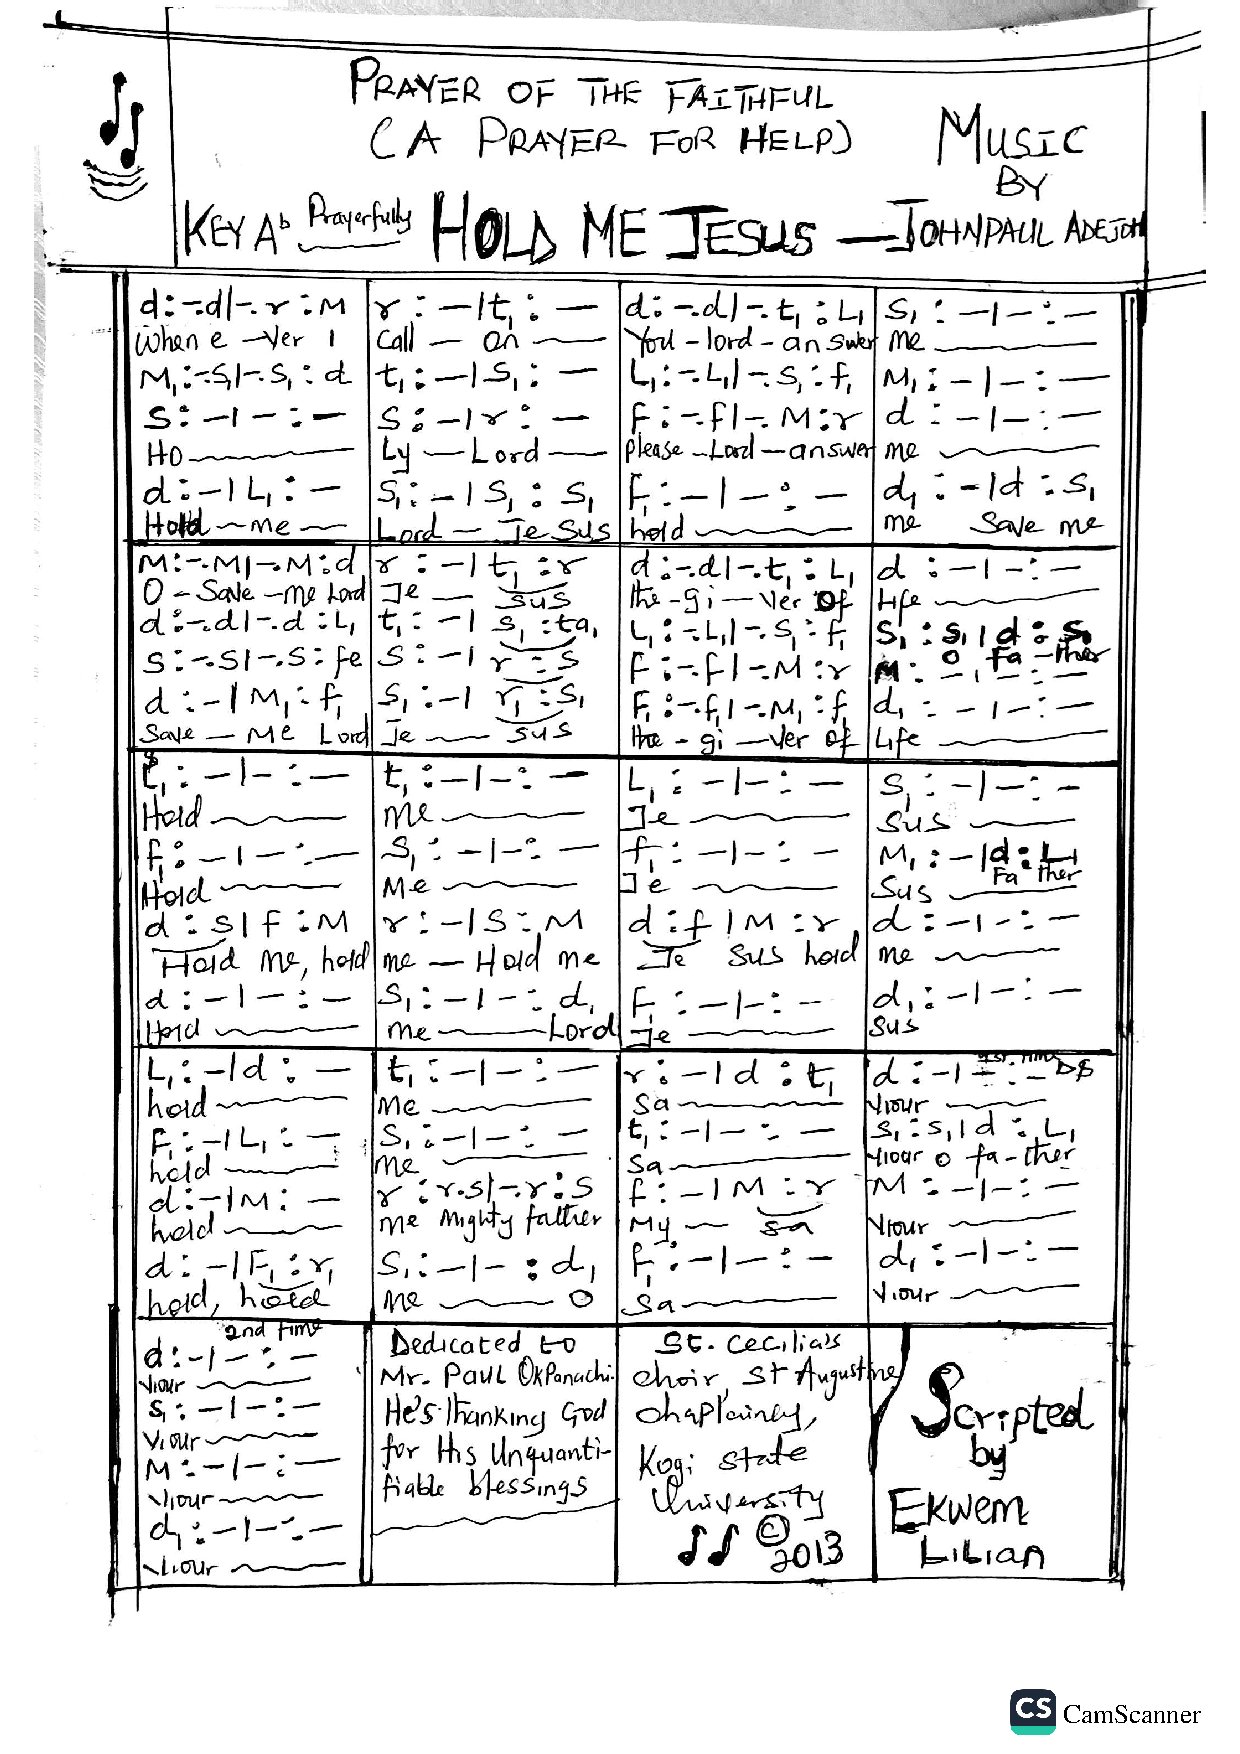 PRAYER OF THE FAITHFUL
(A PRAYER FOR HELP)
MUSIC
BY
KEY Ab Prayerfully HOLD ME JESUS — JOHNPAUL ADEJOH
d:-.d|-.r:M r:-|t₁:- d:-.d|-.t₁:L₁ S₁:-|-:-
When e-ver I Call - on You-lord-answer me
M₁:-.S₁|-.S₁:d t₁:-|S₁:- L₁:-.L₁|-.S₁:f₁ M₁:-|-:-
S:-|-:- S:-|r:- F:-.f|-.M:r d:-|-:-
HO Ly - Lord Please-Lord-answer me
d:-|L₁:- S₁:-|S₁:S₁ F₁:-|-:- d₁:-|d:S₁
Hold - me Lord - Je sus hold me Save me
M:-.M|-.M:d r:-|t₁:r d:-.d|-.t₁:L₁ d:-|-:-
O-Save-me Lord Je - sus the-gi-ver of Life
d:-.d|-.d:L₁ t₁:-|S₁:ta₁ L₁:-.L₁|-.S₁:f₁ S₁:S₁|d:S₁
O Fa-ther
S:-.S|-.S:fe S:-|r:S F:-.f|-.M:r M:-|-:-
d:-|M₁:f₁ S₁:-|r₁:S₁ F₁:-.f₁|-.M₁:f₁ d₁:-|-:-
Save - Me Lord Je - sus the-gi-ver of Life
t₁:-|-:- t₁:-|-:- L₁:-|-:- S₁:-|-:-
Hold me Je Sus
f₁:-|-:- S₁:-|-:- f₁:-|-:- M₁:-|d:L₁
Hold Me Je Sus Fa ther
d:S|f:M r:-|S:M d:f|M:r d:-|-:-
Hold me, hold me - Hold me Je sus hold me
d:-|-:- S₁:-|-:d₁ F₁:-|-:- d₁:-|-:-
Hold me Lord Je Sus
L₁:-|d:- t₁:-|-:- r:-|d:t₁ d:-|-:- 1st time D$
hold Me Sa Viour
F₁:-|L₁:- S₁:-|-:- t₁:-|-:- S₁:S₁|d:L₁
hold me Sa Viour O fa-ther
d:-|M:- r:r.s|-.r:S f:-|M:r M:-|-:-
hold me Mighty father My sa Viour
d:-|F₁:r₁ S₁:-|-:d₁ F₁:-|-:- d₁:-|-:-
hold, hold me O Sa Viour
2nd time
d:-|-:-
Viour
S₁:-|-:-
Viour
M:-|-:-
Viour
d₁:-|-:-
Viour
Dedicated to
Mr. PAUL OKPanachi.
He's thanking God
for His Unquanti-
fiable blessings
St. Cecilia's
choir, St Augustine
chaplaincy,
Kogi State
University
© 2013
Scripted
by
EKWEM
LILIAN
CS CamScanner